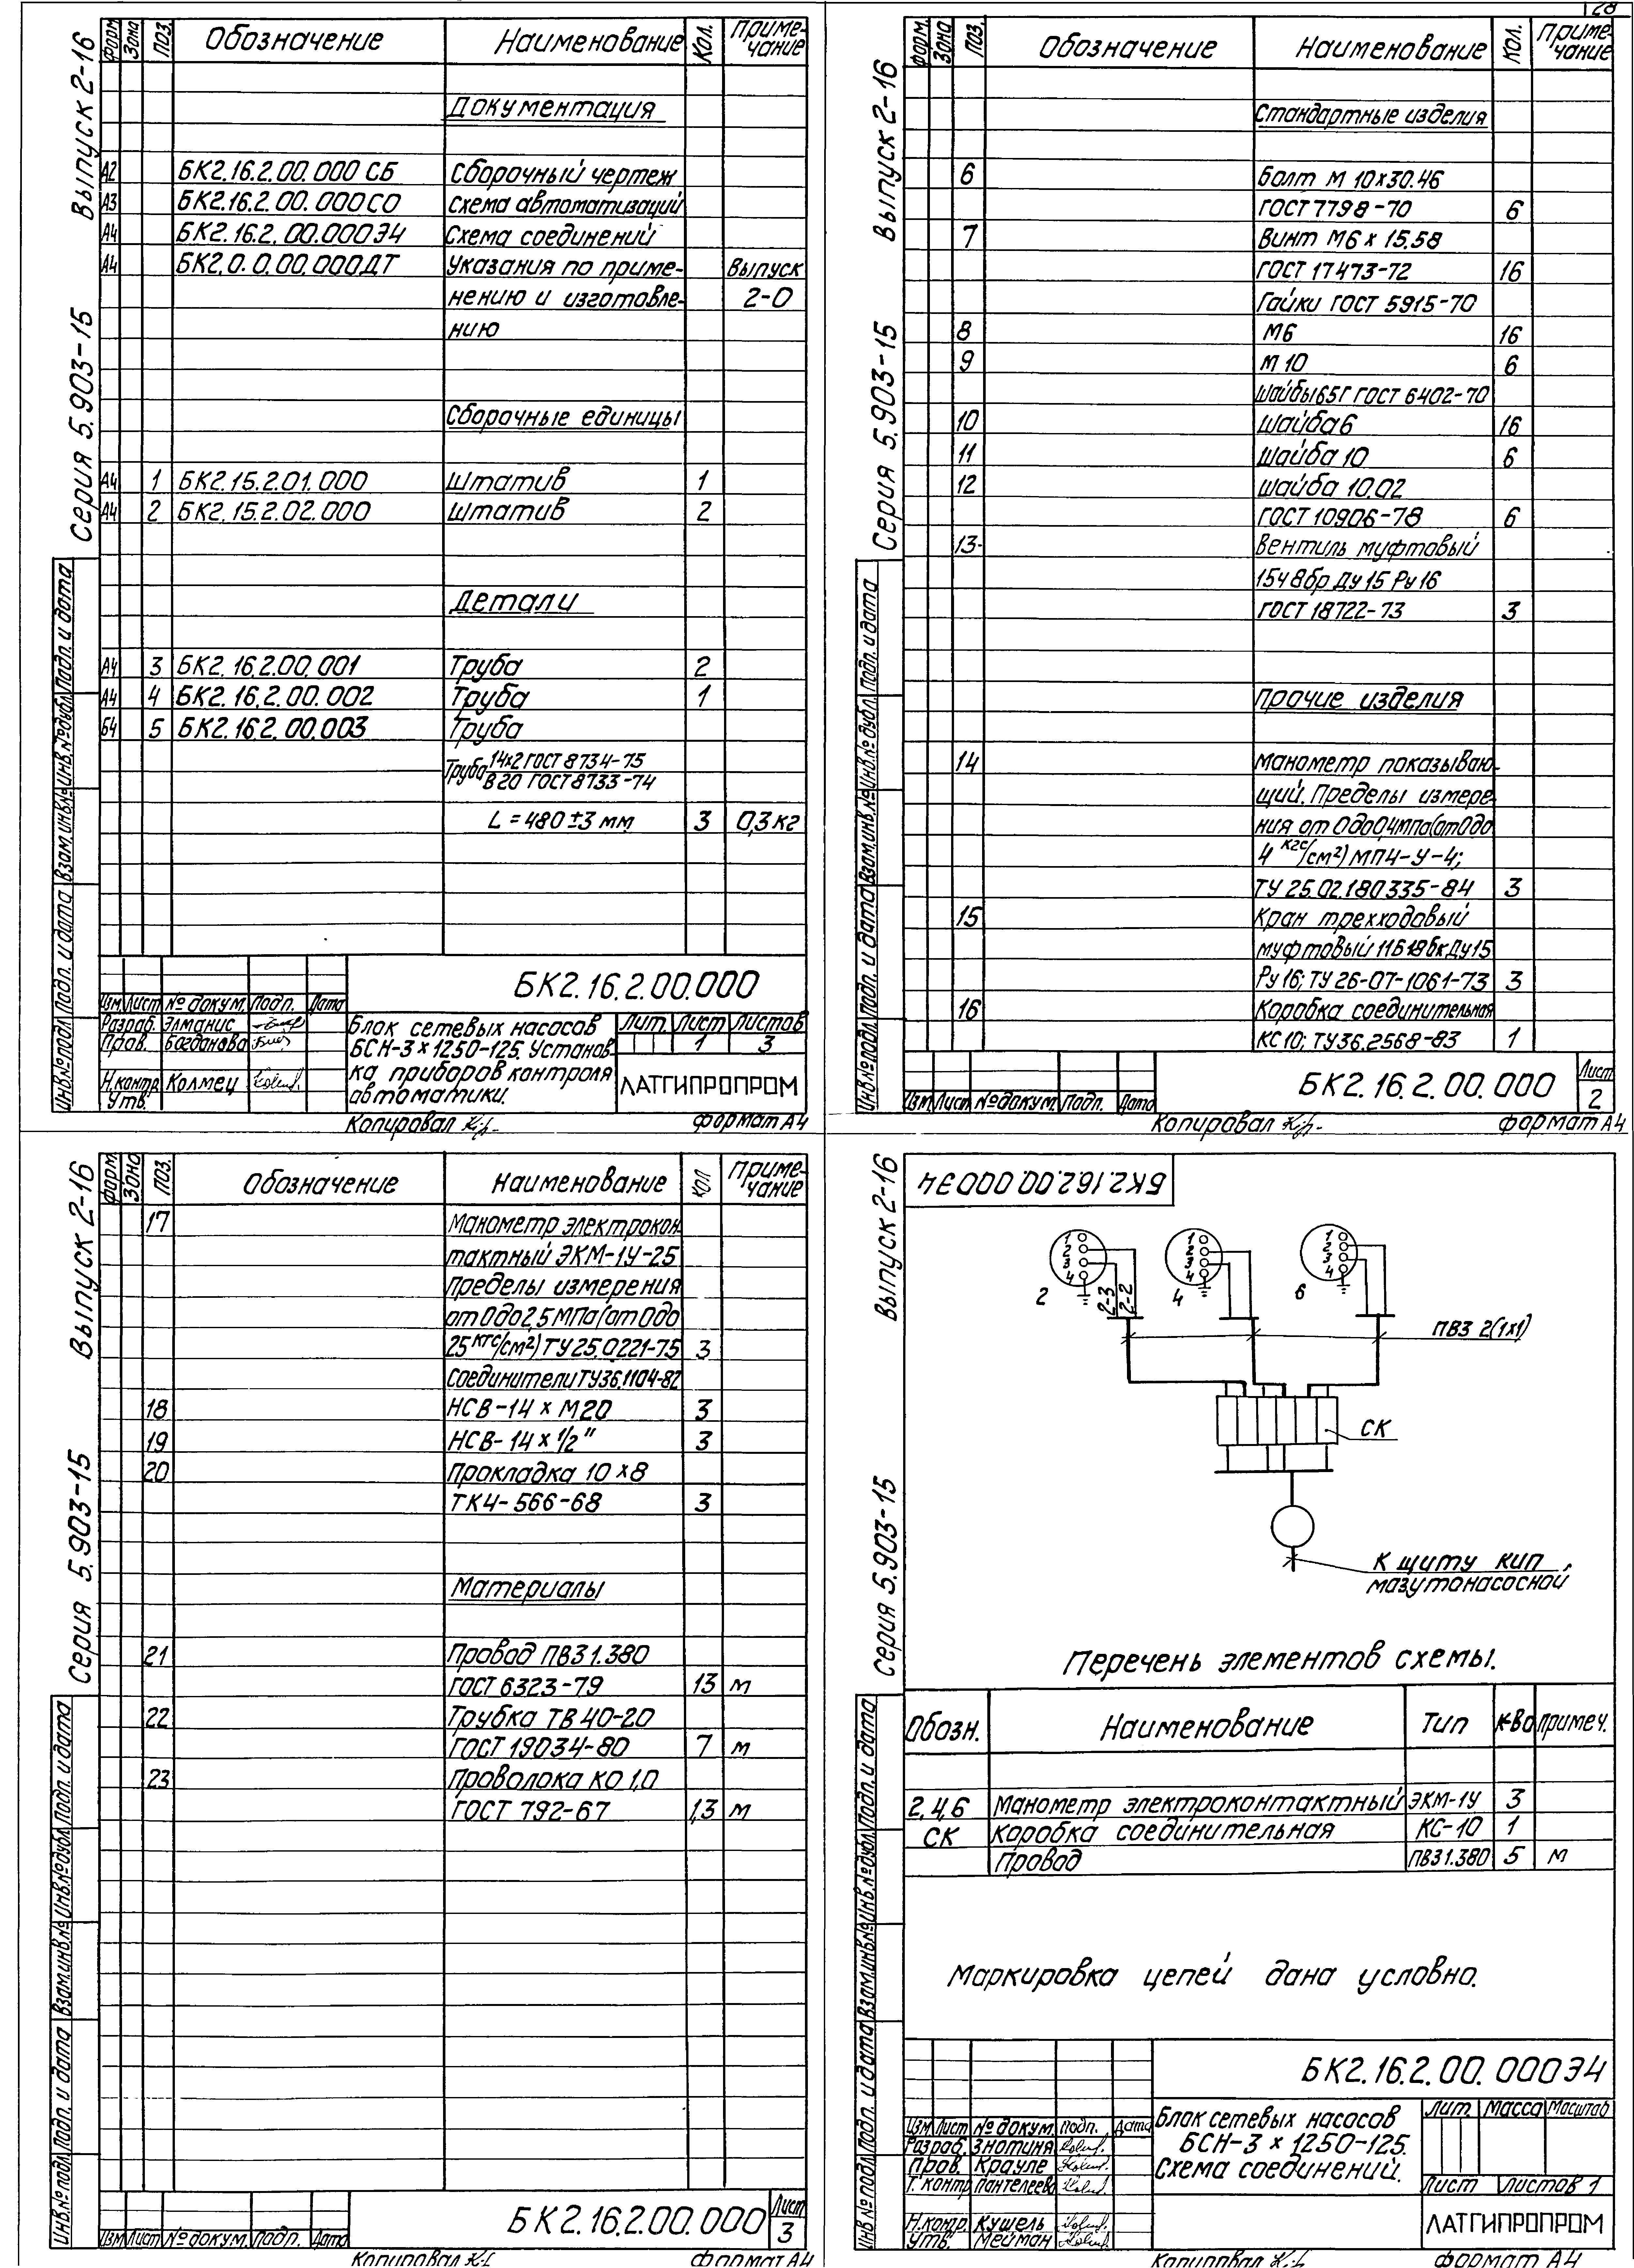 28
Выпуск 2-16
Серия 5.903-15
Форм. Зона Поз. Обозначение Наименование Кол. Примечание
Документация
А2 БК2.16.2.00.000 СБ Сборочный чертеж
А3 БК2.16.2.00.000СО Схема автоматизаций
А4 БК2.16.2.00.000Э4 Схема соединений
А4 БК2.0.0.00.000ДТ Указания по приме- Выпуск
нению и изготовле- 2-0
нию
Сборочные единицы
А4 1 БК2.15.2.01.000 Штатив 1
А4 2 БК2.15.2.02.000 Штатив 2
Детали
А4 3 БК2.16.2.00.001 Труба 2
А4 4 БК2.16.2.00.002 Труба 1
Б4 5 БК2.16.2.00.003 Труба
Труба 14х2 ГОСТ 8734-75
В 20 ГОСТ 8733-74
L = 480 ±3 мм 3 0,3 кг
Инв.№ подл. Подп. и дата Взам.инв.№ Инв.№ дубл. Подп. и дата
БК2.16.2.00.000
Изм. Лист № докум. Подп. Дата
Разраб. Элманис
Пров. Богданова
Н.контр. Колмец
Утв.
Блок сетевых насосов
БСН-3×1250-125. Установ-
ка приборов контроля
автоматики.
Лит. Лист Листов
1 3
ЛАТГИПРОПРОМ
Копировал
Формат А4
Выпуск 2-16
Серия 5.903-15
Форм. Зона Поз. Обозначение Наименование Кол. Примечание
Стандартные изделия
6 Болт М 10×30.46
ГОСТ 7798-70 6
7 Винт М6 × 15.58
ГОСТ 17473-72 16
Гайки ГОСТ 5915-70
8 М6 16
9 М 10 6
Шайбы 65Г ГОСТ 6402-70
10 Шайба 6 16
11 Шайба 10 6
12 Шайба 10.02
ГОСТ 10906-78 6
13 Вентиль муфтовый
15ч 8бр Ду 15 Ру 16
ГОСТ 18722-73 3
Прочие изделия
14 Манометр показываю-
щий. Пределы измере-
ния от 0 до 0,4 МПа (от 0 до
4 кгс/см²) МП4-У-4;
ТУ 25.02.180335-84 3
15 Кран трехходовый
муфтовый 11Б18бк Ду15
Ру 16; ТУ 26-07-1061-73 3
16 Коробка соединительная
КС10; ТУ36.2568-83 1
Инв.№ подл. Подп. и дата Взам.инв.№ Инв.№ дубл. Подп. и дата
Изм. Лист № докум. Подп. Дата
БК2.16.2.00.000
Лист
2
Копировал
Формат А4
Выпуск 2-16
Серия 5.903-15
Форм. Зона Поз. Обозначение Наименование Кол Примечание
17 Манометр электрокон
тактный ЭКМ-1У-25
Пределы измерения
от 0 до 2,5 МПа (от 0 до
25 кгс/см²) ТУ 25.0221-75 3
Соединители ТУ36.1104-82
18 НСВ-14 × М20 3
19 НСВ-14 × 1/2" 3
20 Прокладка 10 × 8
ТК4-566-68 3
Материалы
21 Провод ПВ3 1.380
ГОСТ 6323-79 13 м
22 Трубка ТВ 40-20
ГОСТ 19034-80 7 м
23 Проволока КО 1,0
ГОСТ 792-67 1,3 м
Инв.№ подл. Подп. и дата Взам.инв.№ Инв.№ дубл. Подп. и дата
Изм Лист № докум. Подп. Дата
БК2.16.2.00.000
Лист
3
Копировал
Формат А4
Выпуск 2-16
Серия 5.903-15
БК2.16.2.00.000Э4
1 2 3 4
1 2 3 4
1 2 3 4
2 4 6
2-3 2-2
ПВ3 2(1×1)
СК
К щиту КИП
мазутонасосной
Перечень элементов схемы.
Обозн. Наименование Тип К-во Примеч.
2,4,6 Манометр электроконтактный ЭКМ-1У 3
СК Коробка соединительная КС-10 1
Провод ПВ3 1.380 5 м
Маркировка цепей дана условно.
Инв.№ подл. Подп. и дата Взам.инв.№ Инв.№ дубл. Подп. и дата
БК2.16.2.00.000Э4
Изм Лист № докум. Подп. Дата
Разраб. Знотиня
Пров. Крауле
Т. контр Пантелеева
Н.контр. Кушель
Утв. Мейман
Блок сетевых насосов
БСН-3 × 1250-125.
Схема соединений.
Лит. Масса Масштаб
Лист Листов 1
ЛАТГИПРОПРОМ
Копировал
Формат А4